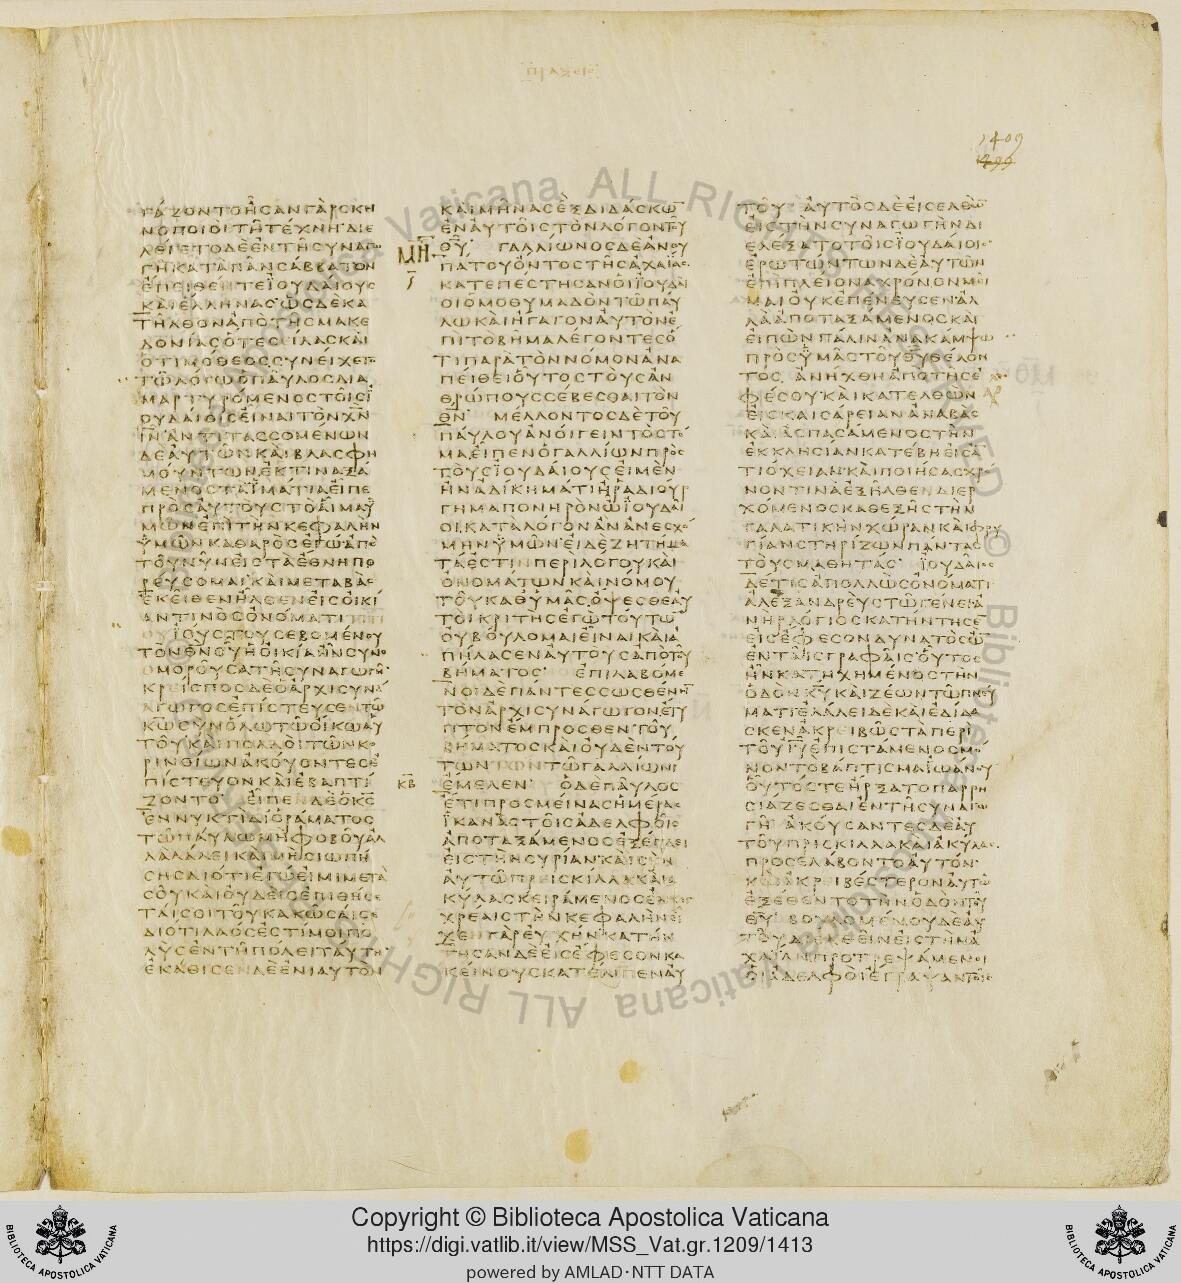 ΠΡΑΞΕΙΣ
1409
ΓΑΖΟΝΤΟ ΗΣΑΝ ΓΑΡ ΣΚΗ
ΝΟΠΟΙΟΙ ΤΗ ΤΕΧΝΗ ΔΙΕ
ΛΕΓΕΤΟ ΔΕ ΕΝ ΤΗ ΣΥΝΑΓΩ
ΓΗ ΚΑΤΑ ΠΑΝ ΣΑΒΒΑΤΟΝ
ΕΠΕΙΘΕΝ ΤΕ ΙΟΥΔΑΙΟΥΣ
ΚΑΙ ΕΛΛΗΝΑΣ ΩΣ ΔΕ ΚΑ
ΤΗΛΘΟΝ ΑΠΟ ΤΗΣ ΜΑΚΕ
ΔΟΝΙΑΣ Ο ΤΕ ΣΕΙΛΑΣ ΚΑΙ
Ο ΤΙΜΟΘΕΟΣ ΣΥΝΕΙΧΕΤΟ
ΤΩ ΛΟΓΩ Ο ΠΑΥΛΟΣ ΔΙΑ
ΜΑΡΤΥΡΟΜΕΝΟΣ ΤΟΙΣ Ι
ΟΥΔΑΙΟΙΣ ΕΙΝΑΙ ΤΟΝ ΧΝ
ΙΝ ΑΝΤΙΤΑΣΣΟΜΕΝΩΝ
ΔΕ ΑΥΤΩΝ ΚΑΙ ΒΛΑΣΦΗ
ΜΟΥΝΤΩΝ ΕΚΤΙΝΑΞΑ
ΜΕΝΟΣ ΤΑ ΙΜΑΤΙΑ ΕΙΠΕ
ΠΡΟΣ ΑΥΤΟΥΣ ΤΟ ΑΙΜΑ Υ
ΜΩΝ ΕΠΙ ΤΗΝ ΚΕΦΑΛΗΝ
ΥΜΩΝ ΚΑΘΑΡΟΣ ΕΓΩ ΑΠΟ
ΤΟΥ ΝΥΝ ΕΙΣ ΤΑ ΕΘΝΗ ΠΟ
ΡΕΥΣΟΜΑΙ ΚΑΙ ΜΕΤΑΒΑΣ
ΕΚΕΙΘΕΝ ΗΛΘΕΝ ΕΙΣ ΟΙΚΙ
ΑΝ ΤΙΝΟΣ ΟΝΟΜΑΤΙ ΤΙΤΙ
ΟΥ ΙΟΥΣΤΟΥ ΣΕΒΟΜΕΝΟΥ
ΤΟΝ ΘΝ ΟΥ Η ΟΙΚΙΑ ΗΝ ΣΥΝΟ
ΜΟΡΟΥΣΑ ΤΗ ΣΥΝΑΓΩΓΗ
ΚΡΕΙΣΠΟΣ ΔΕ Ο ΑΡΧΙΣΥΝΑ
ΓΩΓΟΣ ΕΠΙΣΤΕΥΣΕΝ ΤΩ
ΚΩ ΣΥΝ ΟΛΩ ΤΩ ΟΙΚΩ ΑΥ
ΤΟΥ ΚΑΙ ΠΟΛΛΟΙ ΤΩΝ ΚΟ
ΡΙΝΘΙΩΝ ΑΚΟΥΟΝΤΕΣ Ε
ΠΙΣΤΕΥΟΝ ΚΑΙ ΕΒΑΠΤΙ
ΖΟΝΤΟ ΕΙΠΕΝ ΔΕ Ο ΚΣ
ΕΝ ΝΥΚΤΙ ΔΙ ΟΡΑΜΑΤΟΣ
ΤΩ ΠΑΥΛΩ ΜΗ ΦΟΒΟΥ ΑΛ
ΛΑ ΛΑΛΕΙ ΚΑΙ ΜΗ ΣΙΩΠΗ
ΣΗΣ ΔΙΟΤΙ ΕΓΩ ΕΙΜΙ ΜΕΤΑ
ΣΟΥ ΚΑΙ ΟΥΔΕΙΣ ΕΠΙΘΗΣΕ
ΤΑΙ ΣΟΙ ΤΟΥ ΚΑΚΩΣΑΙ ΣΕ
ΔΙΟΤΙ ΛΑΟΣ ΕΣΤΙ ΜΟΙ ΠΟ
ΛΥΣ ΕΝ ΤΗ ΠΟΛΕΙ ΤΑΥΤΗ
ΕΚΑΘΙΣΕΝ ΔΕ ΕΝΙΑΥΤΟΝ
ΚΑΙ ΜΗΝΑΣ ΕΞ ΔΙΔΑΣΚΩ
ΕΝ ΑΥΤΟΙΣ ΤΟΝ ΛΟΓΟΝ ΤΟΥ
ΘΥ ΓΑΛΛΙΩΝΟΣ ΔΕ ΑΝΘΥ
ΜΗ
ΠΑΤΟΥ ΟΝΤΟΣ ΤΗΣ ΑΧΑΙΑΣ
ΚΑΤΕΠΕΣΤΗΣΑΝ ΟΙ ΙΟΥΔΑΙ
ΟΙ ΟΜΟΘΥΜΑΔΟΝ ΤΩ ΠΑΥ
ΛΩ ΚΑΙ ΗΓΑΓΟΝ ΑΥΤΟΝ Ε
ΠΙ ΤΟ ΒΗΜΑ ΛΕΓΟΝΤΕΣ Ο
ΤΙ ΠΑΡΑ ΤΟΝ ΝΟΜΟΝ ΑΝΑ
ΠΕΙΘΕΙ ΟΥΤΟΣ ΤΟΥΣ ΑΝ
ΘΡΩΠΟΥΣ ΣΕΒΕΣΘΑΙ ΤΟΝ
ΘΝ ΜΕΛΛΟΝΤΟΣ ΔΕ ΤΟΥ
ΠΑΥΛΟΥ ΑΝΟΙΓΕΙΝ ΤΟ ΣΤΟ
ΜΑ ΕΙΠΕΝ Ο ΓΑΛΛΙΩΝ ΠΡΟΣ
ΤΟΥΣ ΙΟΥΔΑΙΟΥΣ ΕΙ ΜΕΝ
ΗΝ ΑΔΙΚΗΜΑ ΤΙ Η ΡΑΔΙΟΥΡ
ΓΗΜΑ ΠΟΝΗΡΟΝ Ω ΙΟΥΔΑΙ
ΟΙ ΚΑΤΑ ΛΟΓΟΝ ΑΝ ΑΝΕΣΧΟ
ΜΗΝ ΥΜΩΝ ΕΙ ΔΕ ΖΗΤΗΜΑ
ΤΑ ΕΣΤΙΝ ΠΕΡΙ ΛΟΓΟΥ ΚΑΙ
ΟΝΟΜΑΤΩΝ ΚΑΙ ΝΟΜΟΥ
ΤΟΥ ΚΑΘ ΥΜΑΣ ΟΨΕΣΘΕ ΑΥ
ΤΟΙ ΚΡΙΤΗΣ ΕΓΩ ΤΟΥΤΩ
ΟΥ ΒΟΥΛΟΜΑΙ ΕΙΝΑΙ ΚΑΙ Α
ΠΗΛΑΣΕΝ ΑΥΤΟΥΣ ΑΠΟ ΤΟΥ
ΒΗΜΑΤΟΣ ΕΠΙΛΑΒΟΜΕ
ΝΟΙ ΔΕ ΠΑΝΤΕΣ ΣΩΣΘΕΝΗ
ΤΟΝ ΑΡΧΙΣΥΝΑΓΩΓΟΝ ΕΤΥ
ΠΤΟΝ ΕΜΠΡΟΣΘΕΝ ΤΟΥ
ΒΗΜΑΤΟΣ ΚΑΙ ΟΥΔΕΝ ΤΟΥ
ΤΩΝ ΤΩ ΓΑΛΛΙΩΝΙ
ΕΜΕΛΕΝ Ο ΔΕ ΠΑΥΛΟΣ
ΚΒ
ΕΤΙ ΠΡΟΣΜΕΙΝΑΣ ΗΜΕΡΑΣ
ΙΚΑΝΑΣ ΤΟΙΣ ΑΔΕΛΦΟΙΣ
ΑΠΟΤΑΞΑΜΕΝΟΣ ΕΞΕΠΛΕΙ
ΕΙΣ ΤΗΝ ΣΥΡΙΑΝ ΚΑΙ ΣΥΝ
ΑΥΤΩ ΠΡΕΙΣΚΙΛΛΑ ΚΑΙ Α
ΚΥΛΑΣ ΚΕΙΡΑΜΕΝΟΣ ΕΝ ΚΕΓ
ΧΡΕΑΙΣ ΤΗΝ ΚΕΦΑΛΗΝ ΕΙ
ΧΕΝ ΓΑΡ ΕΥΧΗΝ ΚΑΤΗΝ
ΤΗΣΑΝ ΔΕ ΕΙΣ ΕΦΕΣΟΝ ΚΑ
ΚΕΙΝΟΥΣ ΚΑΤΕΛΙΠΕΝ ΑΥ
ΤΟΥ ΑΥΤΟΣ ΔΕ ΕΙΣΕΛΘΩ
ΕΙΣ ΤΗΝ ΣΥΝΑΓΩΓΗΝ ΔΙ
ΕΛΕΞΑΤΟ ΤΟΙΣ ΙΟΥΔΑΙΟΙΣ
ΕΡΩΤΩΝΤΩΝ ΔΕ ΑΥΤΩΝ
ΕΠΙ ΠΛΕΙΟΝΑ ΧΡΟΝΟΝ ΜΕΙ
ΝΑΙ ΟΥΚ ΕΠΕΝΕΥΣΕΝ ΑΛ
ΛΑ ΑΠΟΤΑΞΑΜΕΝΟΣ ΚΑΙ
ΕΙΠΩΝ ΠΑΛΙΝ ΑΝΑΚΑΜΨΩ
ΠΡΟΣ ΥΜΑΣ ΤΟΥ ΘΥ ΘΕΛΟΝ
ΤΟΣ ΑΝΗΧΘΗ ΑΠΟ ΤΗΣ Ε
ΦΕΣΟΥ ΚΑΙ ΚΑΤΕΛΘΩΝ
ΕΙΣ ΚΑΙΣΑΡΕΙΑΝ ΑΝΑΒΑΣ
ΚΑΙ ΑΣΠΑΣΑΜΕΝΟΣ ΤΗΝ
ΕΚΚΛΗΣΙΑΝ ΚΑΤΕΒΗ ΕΙΣ Α
ΤΙΟΧΕΙΑΝ ΚΑΙ ΠΟΙΗΣΑΣ ΧΡ
ΝΟΝ ΤΙΝΑ ΕΞΗΛΘΕΝ ΔΙΕΡ
ΧΟΜΕΝΟΣ ΚΑΘΕΞΗΣ ΤΗΝ
ΓΑΛΑΤΙΚΗΝ ΧΩΡΑΝ ΚΑΙ ΦΡΥ
ΓΙΑΝ ΣΤΗΡΙΖΩΝ ΠΑΝΤΑΣ
ΤΟΥΣ ΜΑΘΗΤΑΣ ΙΟΥΔΑΙΟΣ
ΔΕ ΤΙΣ ΑΠΟΛΛΩΣ ΟΝΟΜΑΤΙ
ΑΛΕΞΑΝΔΡΕΥΣ ΤΩ ΓΕΝΕΙ Α
ΝΗΡ ΛΟΓΙΟΣ ΚΑΤΗΝΤΗΣΕ
ΕΙΣ ΕΦΕΣΟΝ ΔΥΝΑΤΟΣ Ω
ΕΝ ΤΑΙΣ ΓΡΑΦΑΙΣ ΟΥΤΟΣ
ΗΝ ΚΑΤΗΧΗΜΕΝΟΣ ΤΗΝ
ΟΔΟΝ ΚΥ ΚΑΙ ΖΕΩΝ ΤΩ ΠΝΕΥ
ΜΑΤΙ ΕΛΑΛΕΙ ΔΕ ΚΑΙ ΕΔΙΔΑ
ΣΚΕΝ ΑΚΡΕΙΒΩΣ ΤΑ ΠΕΡΙ
ΤΟΥ ΙΥ ΕΠΙΣΤΑΜΕΝΟΣ ΜΟ
ΝΟΝ ΤΟ ΒΑΠΤΙΣΜΑ ΙΩΑΝΟΥ
ΟΥΤΟΣ ΤΕ ΗΡΞΑΤΟ ΠΑΡΡΗ
ΣΙΑΖΕΣΘΑΙ ΕΝ ΤΗ ΣΥΝΑΓΩ
ΓΗ ΑΚΟΥΣΑΝΤΕΣ ΔΕ ΑΥ
ΤΟΥ ΠΡΙΣΚΙΛΛΑ ΚΑΙ ΑΚΥΛΑΣ
ΠΡΟΣΕΛΑΒΟΝΤΟ ΑΥΤΟΝ
ΚΑΙ ΑΚΡΕΙΒΕΣΤΕΡΟΝ ΑΥΤΩ
ΕΞΕΘΕΝΤΟ ΤΗΝ ΟΔΟΝ ΤΟΥ
ΘΥ ΒΟΥΛΟΜΕΝΟΥ ΔΕ ΑΥ
ΤΟΥ ΔΙΕΛΘΕΙΝ ΕΙΣ ΤΗΝ Α
ΧΑΙΑΝ ΠΡΟΤΡΕΨΑΜΕΝΟΙ
ΟΙ ΑΔΕΛΦΟΙ ΕΓΡΑΨΑΝ ΤΟΙΣ
Copyright © Biblioteca Apostolica Vaticana
https://digi.vatlib.it/view/MSS_Vat.gr.1209/1413
powered by AMLAD·NTT DATA
BIBLIOTECA APOSTOLICA VATICANA
BIBLIOTECA APOSTOLICA VATICANA